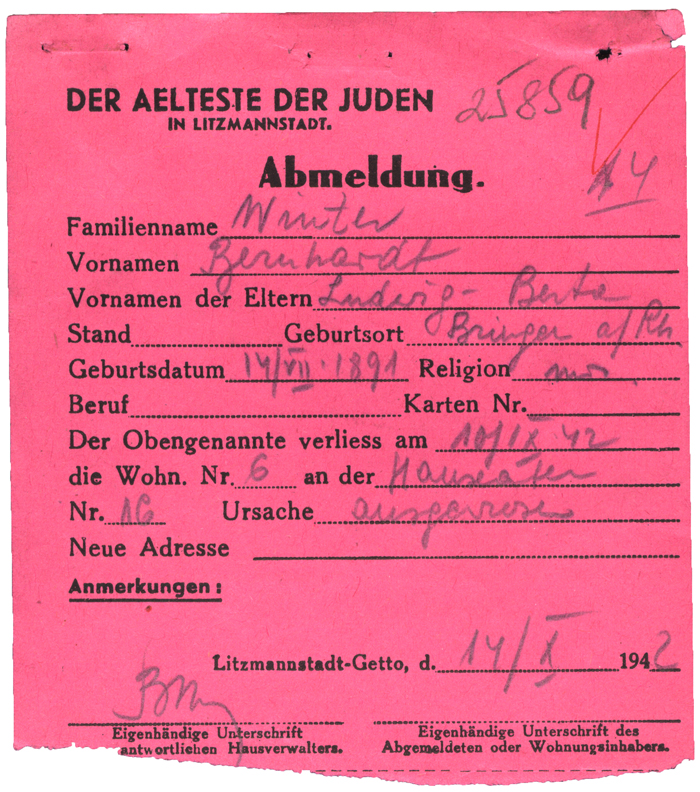 DER AELTESTE DER JUDEN
IN LITZMANNSTADT.
25859
14
Abmeldung.
Familienname Winter
Vornamen Bernhardt
Vornamen der Eltern Ludwig - Berta
Stand Geburtsort Bringen a/Rh.
Geburtsdatum 14/VII. 1891 Religion mos.
Beruf Karten Nr.
Der Obengenannte verliess am 10/IX 42
die Wohn. Nr. 6 an der Hanseaten
Nr. 16 Ursache ausgewiesen
Neue Adresse
Anmerkungen:
Litzmannstadt-Getto, d. 14/X 1942
Eigenhändige Unterschrift
antwortlichen Hausverwalters.
Eigenhändige Unterschrift des
Abgemeldeten oder Wohnungsinhabers.